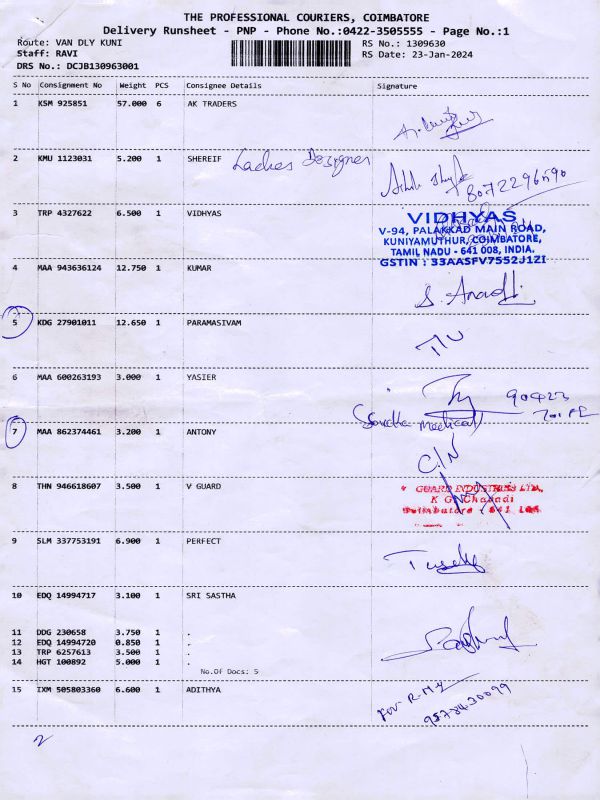 THE PROFESSIONAL COURIERS, COIMBATORE
Delivery Runsheet - PNP - Phone No.:0422-3505555 - Page No.:1
Route: VAN DLY KUNI RS No.: 1309630
Staff: RAVI RS Date: 23-Jan-2024
DRS No.: DCJB130963001
S No Consignment No Weight PCS Consignee Details Signature
1 KSM 925851 57.000 6 AK TRADERS
2 KMU 1123031 5.200 1 SHEREIF Ladies Designer
8072296590
3 TRP 4327622 6.500 1 VIDHYAS
VIDHYAS
V-94, PALAKKAD MAIN ROAD,
KUNIYAMUTHUR, COIMBATORE,
TAMIL NADU - 641 008, INDIA.
GSTIN : 33AASFV7552J1ZI
4 MAA 943636124 12.750 1 KUMAR
5 KDG 27901011 12.650 1 PARAMASIVAM
6 MAA 600263193 3.000 1 YASIER
90423
medical
7 MAA 862374461 3.200 1 ANTONY
C.IN
8 THN 946618607 3.500 1 V GUARD
GUARD INDUSTRIES LTD.,
K G Chavadi
9 SLM 337753191 6.900 1 PERFECT
10 EDQ 14994717 3.100 1 SRI SASTHA
11 DDG 230658 3.750 1 .
12 EDQ 14994720 0.850 1 .
13 TRP 6257613 3.500 1 .
14 HGT 100892 5.000 1 .
No.Of Docs: 5
15 IXM 505803360 6.600 1 ADITHYA
for R.M.
2